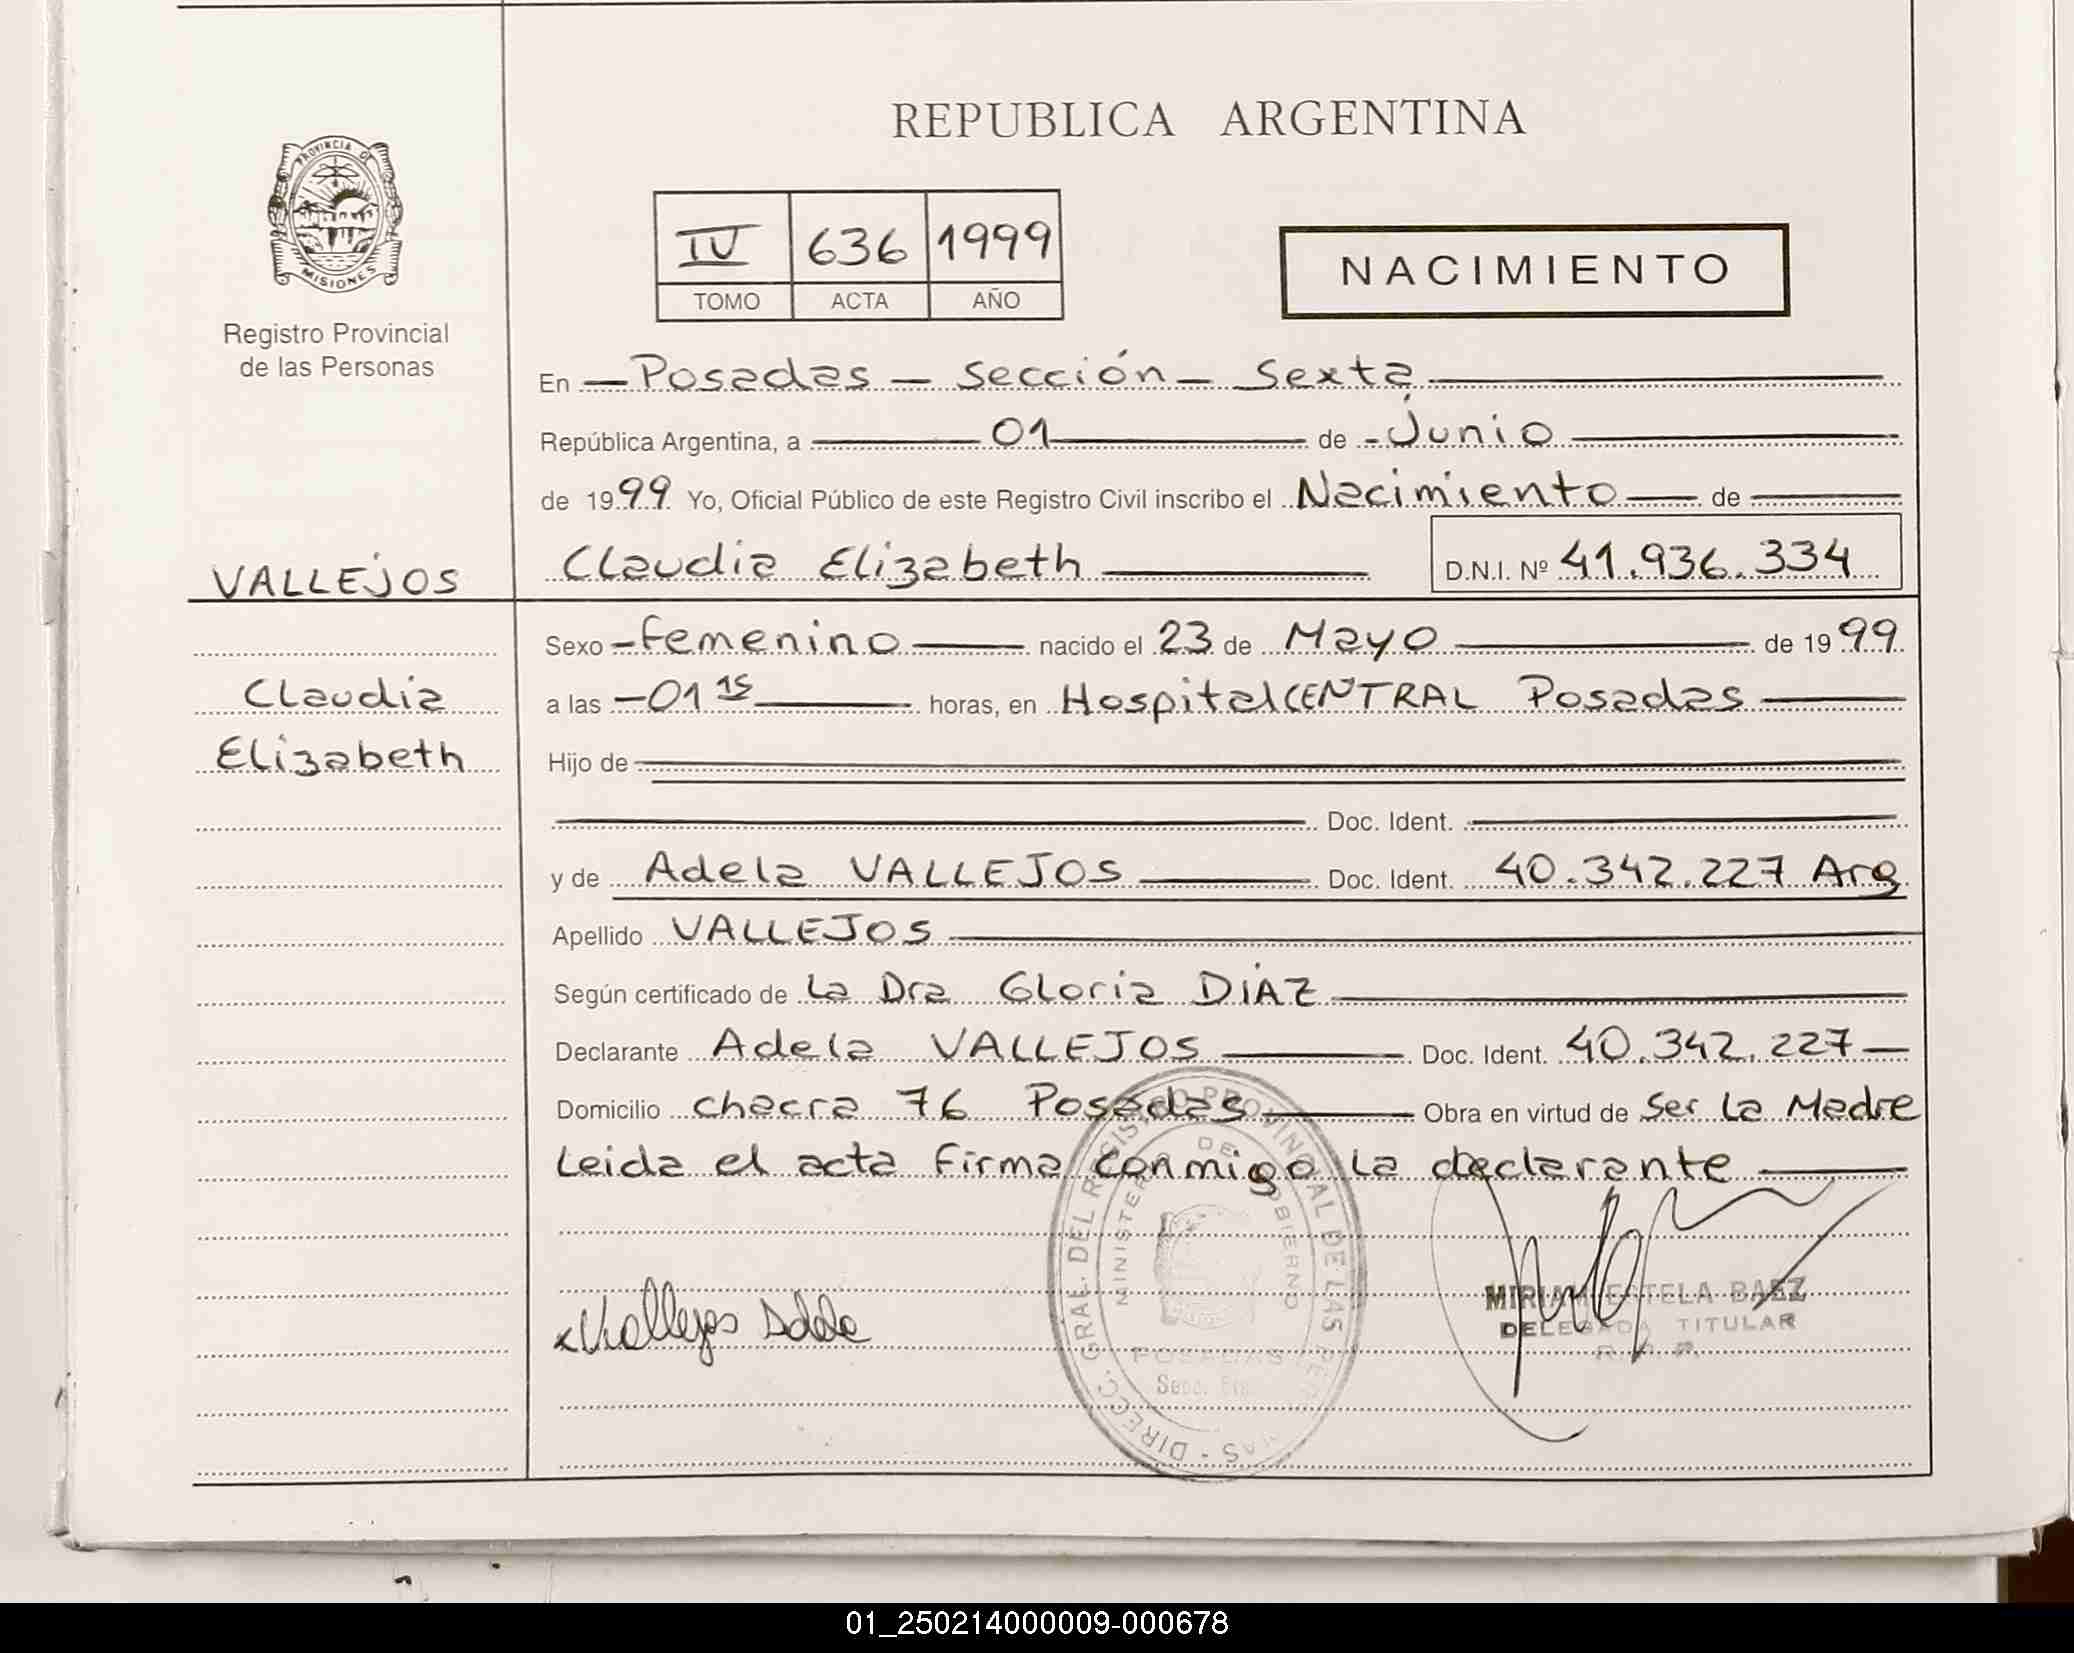 REPUBLICA ARGENTINA
PROVINCIA DE MISIONES
Registro Provincial
de las Personas
IV 636 1999
TOMO ACTA AÑO
NACIMIENTO
En - Posadas - Sección - Sexta
República Argentina, a 01 de - Junio
de 1999 Yo, Oficial Público de este Registro Civil inscribo el Nacimiento de
VALLEJOS
Claudia Elizabeth D.N.I. Nº 41.936.334
Sexo - Femenino nacido el 23 de Mayo de 1999
Claudia
Elizabeth
a las - 01 15 horas, en Hospital CENTRAL Posadas
Hijo de
Doc. Ident.
y de Adela VALLEJOS Doc. Ident. 40.342.227 Arg
Apellido VALLEJOS
Según certificado de La Dra Gloria DíAZ
Declarante Adela VALLEJOS Doc. Ident. 40.342.227
Domicilio chacra 76 Posadas Obra en virtud de Ser La Madre
Leida el acta firma conmigo La declarante
Vallejos Adela
DIREC. GRAL. DEL REGISTRO PROVINCIAL DE LAS PERSONAS
MINISTERIO DE GOBIERNO
POSADAS
Secc.
MIRIAM ESTELA BAEZ
DELEGADA TITULAR
01_250214000009-000678